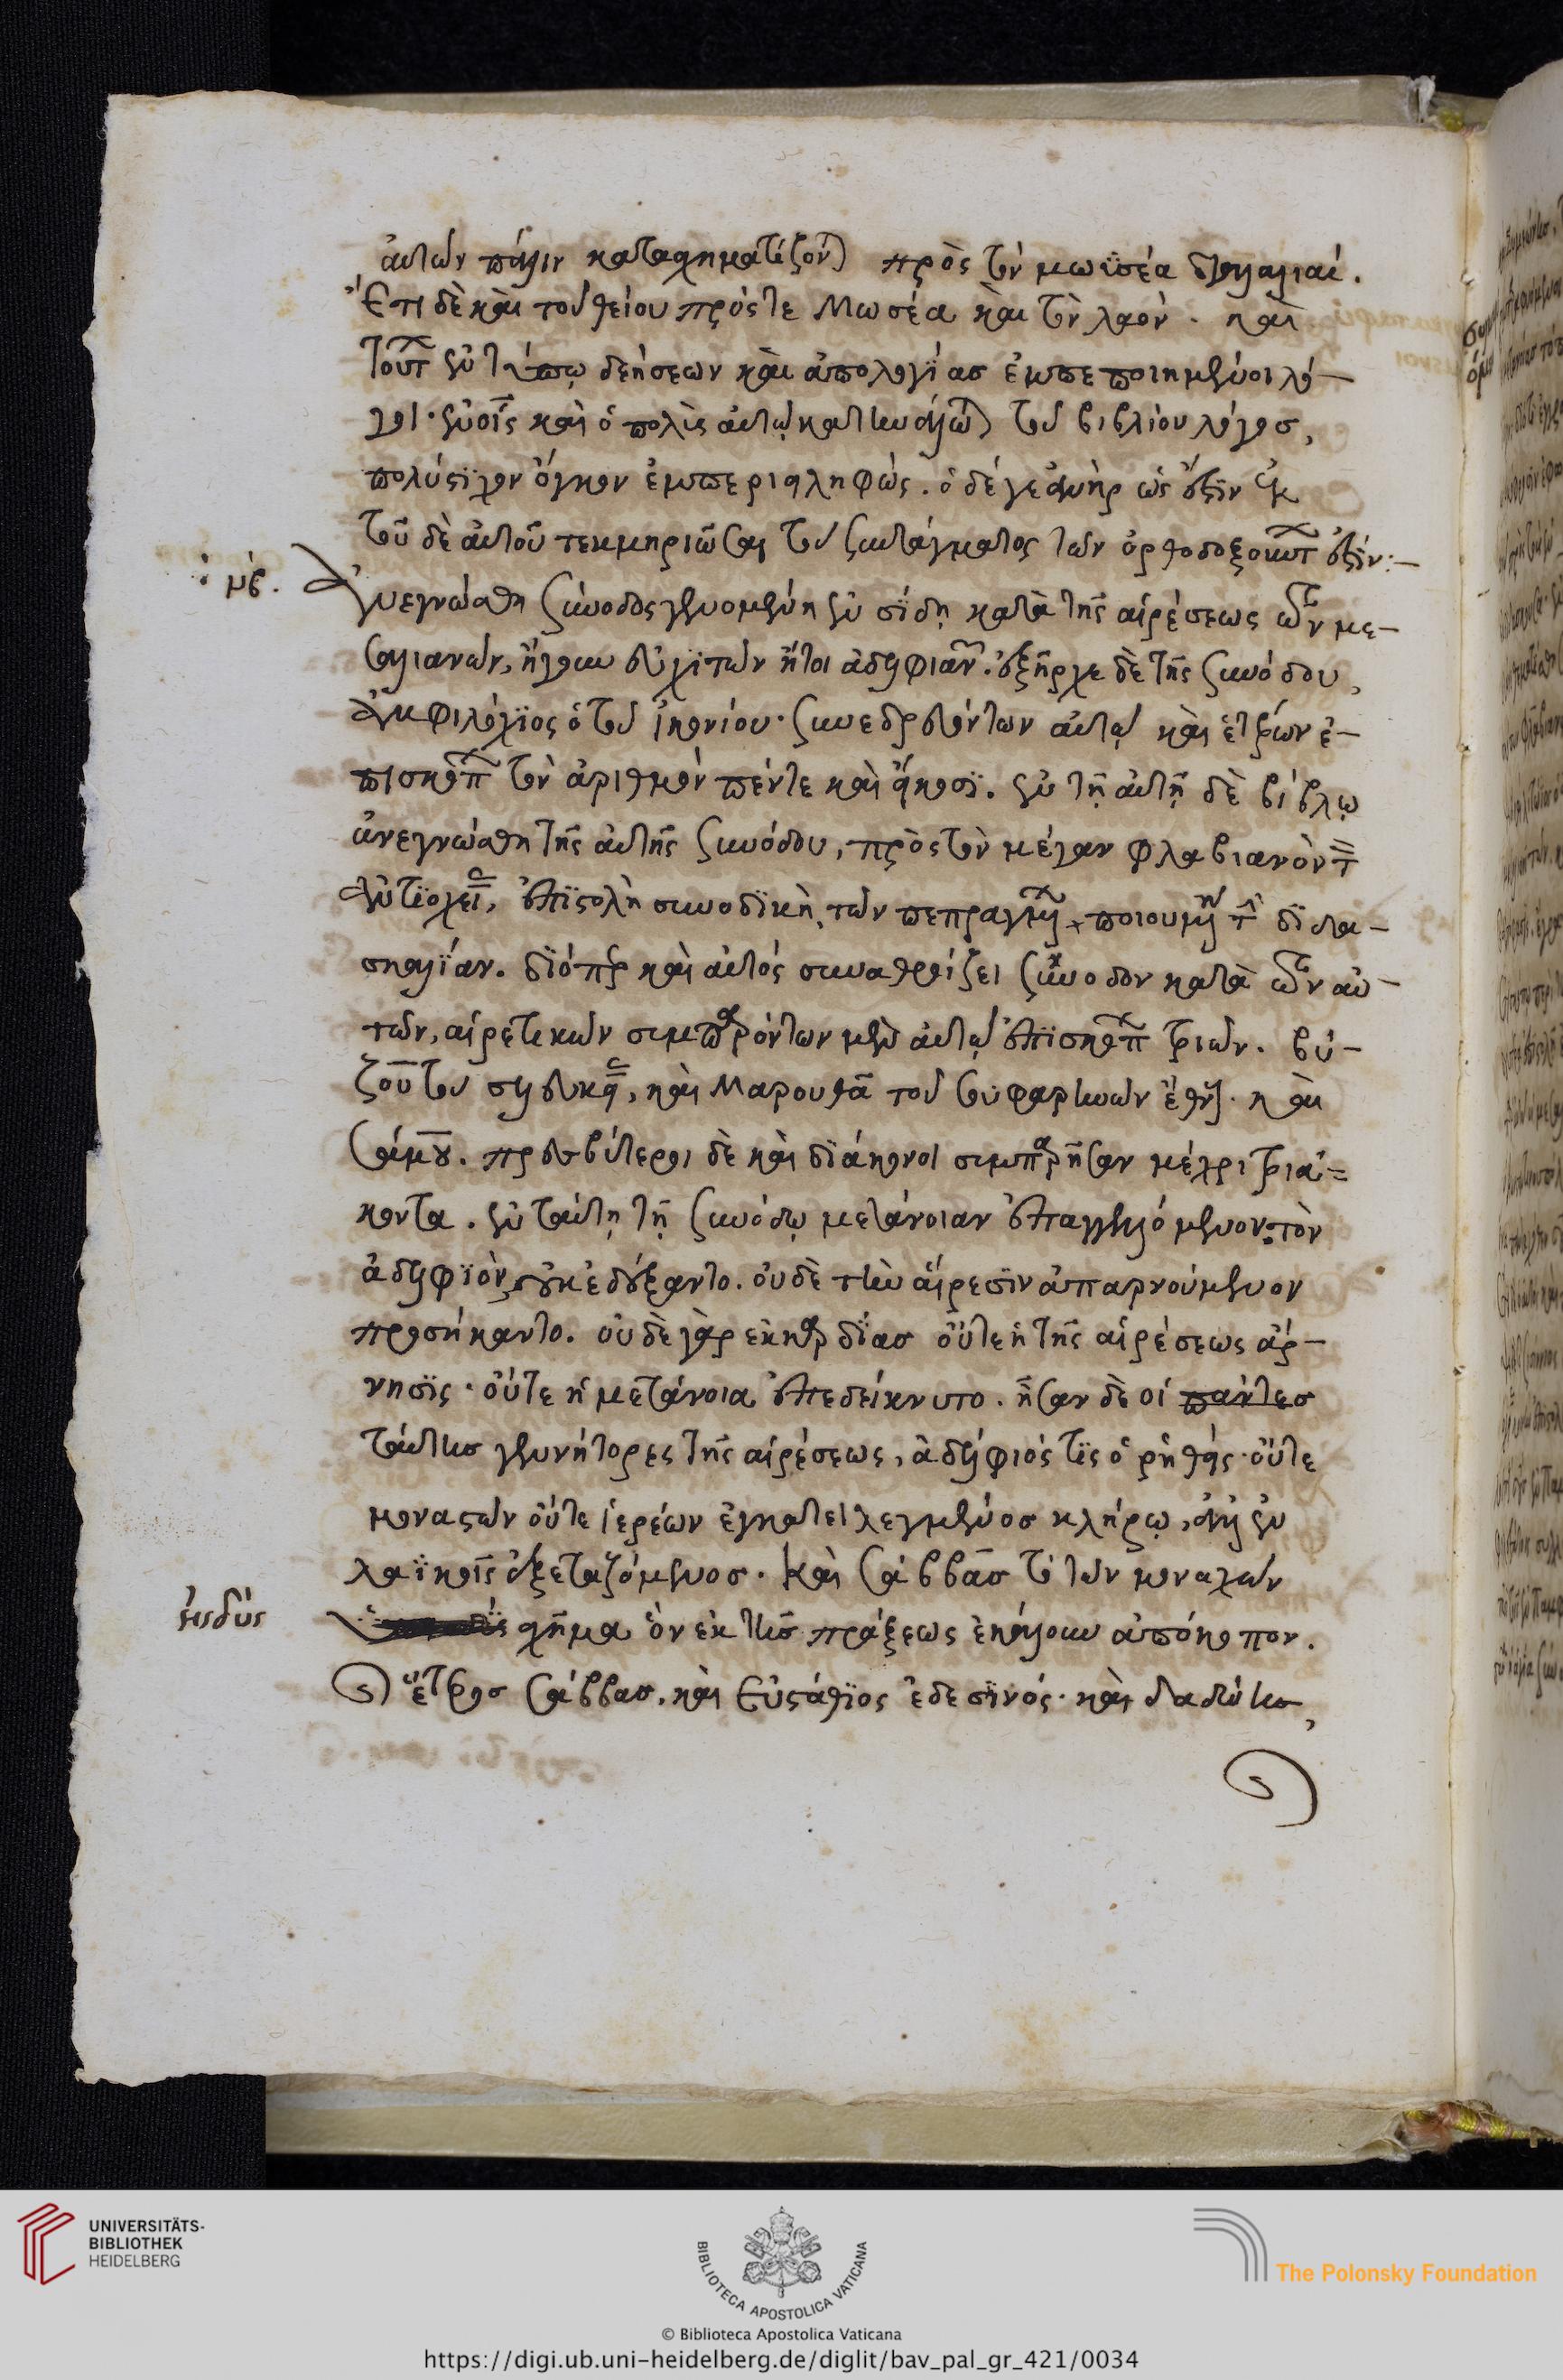 αὐτῶν πάλιν κατασχηματίζονται πρὸς τὸν μωϋσέα διάλογοι.
Ἔτι δὲ καὶ τοῦ θείου πρός τε Μωσέα καὶ τὸν λαόν. καὶ
τούτ ἐν τύπῳ δεήσεων καὶ ἀπολογίας ἐμπεποιημένοι λό-
γοι. ἐν οἷς καὶ ὁ πολὺς αὐτῷ κατηνάλωται τοῦ βιβλίου λόγος,
πολύστιχον ὄγκον ἐμπεριειληφώς. ὁ δέ γε ἀνὴρ ὡς ἔστιν ἐκ
τοῦδε αὐτοῦ τεκμηριῶσαι τοῦ συντάγματος τῶν ὀρθοδοξούντ ἐστίν:-
νβ. Ἀνεγνώσθη σύνοδος γενομένη ἐν σίδῃ κατὰ τῆς αἱρέσεως τῶν με-
σαλιανῶν, ἤγουν εὐχιτῶν ἤτοι ἀδελφιαν. ἐξῆρχε δὲ τῆς συνόδου,
Ἀμφιλόχιος ὁ τοῦ ἰκονίου. συνεδρευόντων αὐτῷ καὶ ἑτέρων ἐ-
πισκόπ τὸν ἀριθμὸν πέντε καὶ εἴκοσι. ἐν τῇ αὐτῇ δὲ βίβλῳ
ἀνεγνώσθη τῆς αὐτῆς συνόδου, πρὸς τὸν μέγαν φλαβιανὸν τ
ἀντιοχεί, ἐπιστολὴ συνοδικὴ, τῶν πεπραγμέν ποιουμένη τ διδα-
σκαλίαν. διόπερ καὶ αὐτὸς συναθροίζει σύνοδον κατὰ τῶν αὐ-
τῶν, αἱρετικῶν συμπαρόντων μὲν αὐτῷ ἐπισκόπ τριῶν. βύ-
ζου τοῦ σελευκεί, καὶ Μαρουθᾶ τοῦ τουφαρηνῶν ἔθν. καὶ
Σάμου. πρεσβύτεροι δὲ καὶ διάκονοι συμπαρῆσαν μέχρι τριά-
κοντα. ἐν ταύτῃ τῇ συνόδῳ μετάνοιαν ἐπαγγελόμενον τὸν
ἀδελφιὸν, οὐκ ἐδέξαντο. οὐδὲ τὴν αἵρεσιν ἀπαρνούμενον
προσήκαντο. οὐδὲ γὰρ ἐκ καρδίας οὔτε ἡ τῆς αἱρέσεως ἄρ-
νησις. οὔτε ἡ μετάνοια ἐπεδείκνυτο. ἦσαν δὲ οἱ πάντες
ταύτης γεννήτορες τῆς αἱρέσεως, ἀδέλφιός τις ὁ ῥηθείς. οὔτε
μοναστῶν οὔτε ἱερέων ἐγκατειλεγμένος κλήρῳ, ἀλλ ἐν
λαϊκοῖς ἐξεταζόμενος. Καὶ Σάββας τὸ τῶν μοναχῶν
ἐνδὺς σχῆμα ὃν ἐκ τῆς πράξεως ἐκάλουν ἀπόκοπον.
ἕτερος Σάββας. καὶ Εὐστάθιος ἐδεσινός. καὶ δαδώης,